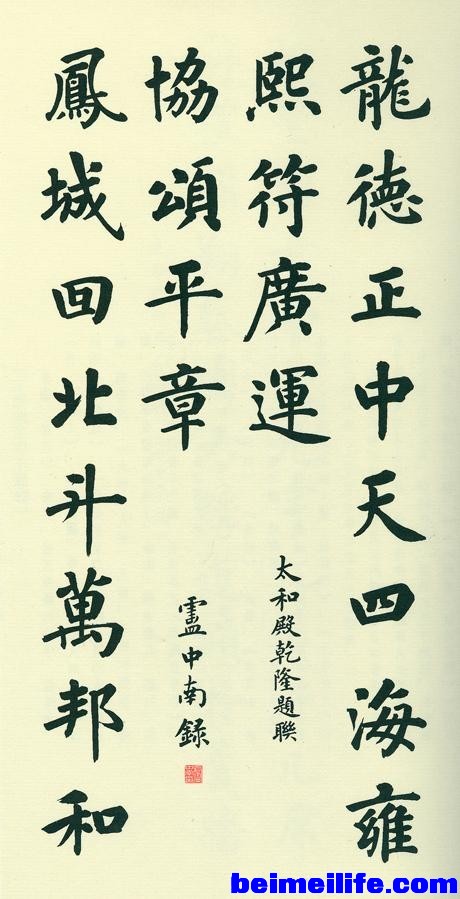 龍德正中天四海雍
熙符廣運
鳳城回北斗萬邦和
協頌平章
太和殿乾隆題聯
盧中南錄
beimeilife.com